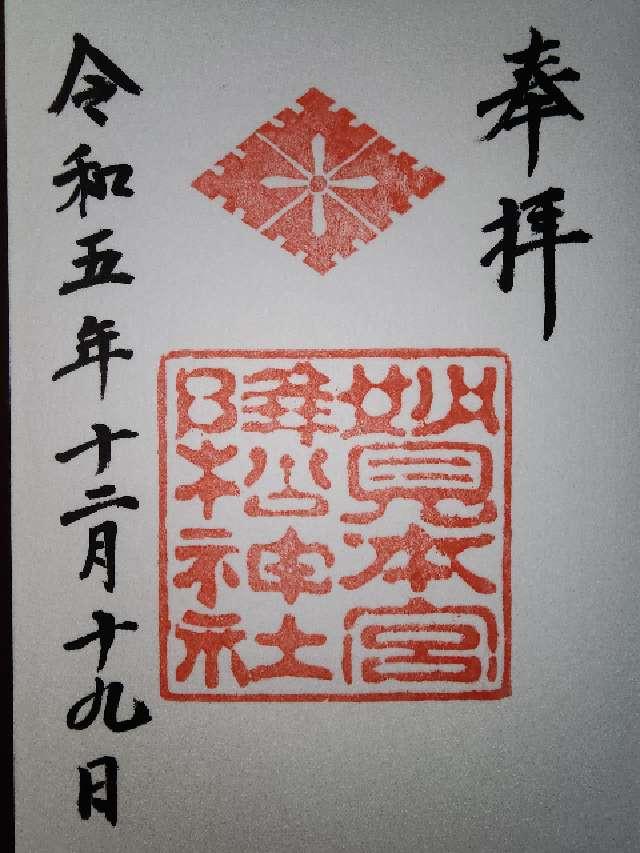 奉拝
妙見本宮
降松神社
令和五年十二月十九日